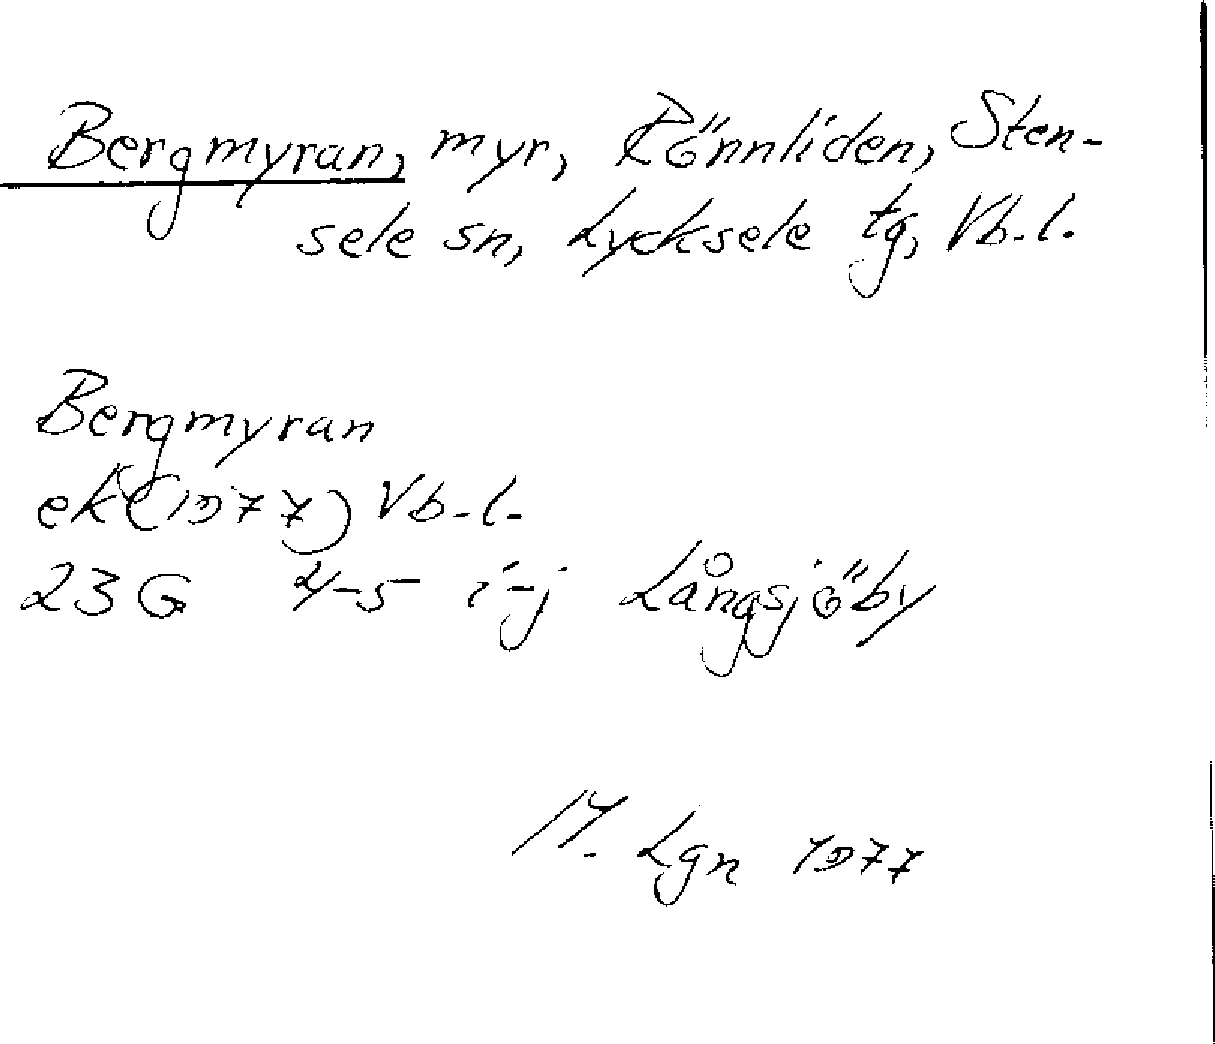 Bergmyran, myr, Rönnliden, Sten-
sele sn, Lycksele tg, Vb.l.
Bergmyran
ek (1977) Vb.l.
23G 4-5 i-j Långsjöby
Lgn 1977